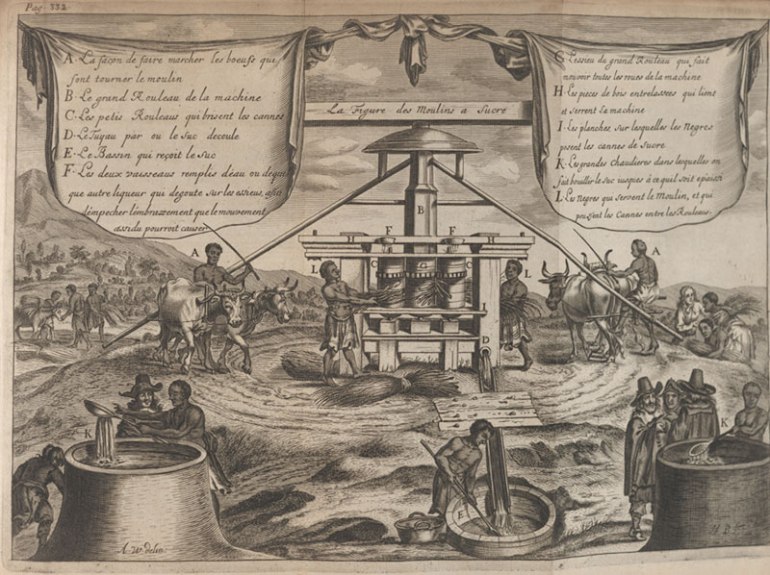 Pag. 332
A. La façon de faire marcher les boeufs qui
font tourner le moulin
B. Le grand Rouleau de la machine
C. Les petis Rouleaus qui brisent les cannes
D. Le Tuyau par ou le suc decoule
E. Le Bassin qui reçoit le suc
F. Les deux vaisseaus remplis d'eau ou de
que autre liqueur qui degoute sur les essieus, afin
d'empecher l'embrasement que le mouvement
assidu pourroit causer
La Figure des Moulins a Sucre
G. L'essieu du grand Rouleau qui fait
mouvoir toutes les roues de la machine
H. Les pieces de bois entrelassées qui lient
et serrent la machine
I. Les planches sur lesquelles les Negres
posent les cannes de sucre
K. Les grandes chaudieres dans lesquelles on
fait bouillir le suc iusques à ce qu'il soit epaissi
L. Les Negres qui servent le Moulin, et qui
poussent les Cannes entre les Rouleaus
B
F
F
A
A
L
C
G
L
I
D
K
K
E
A. W. delin